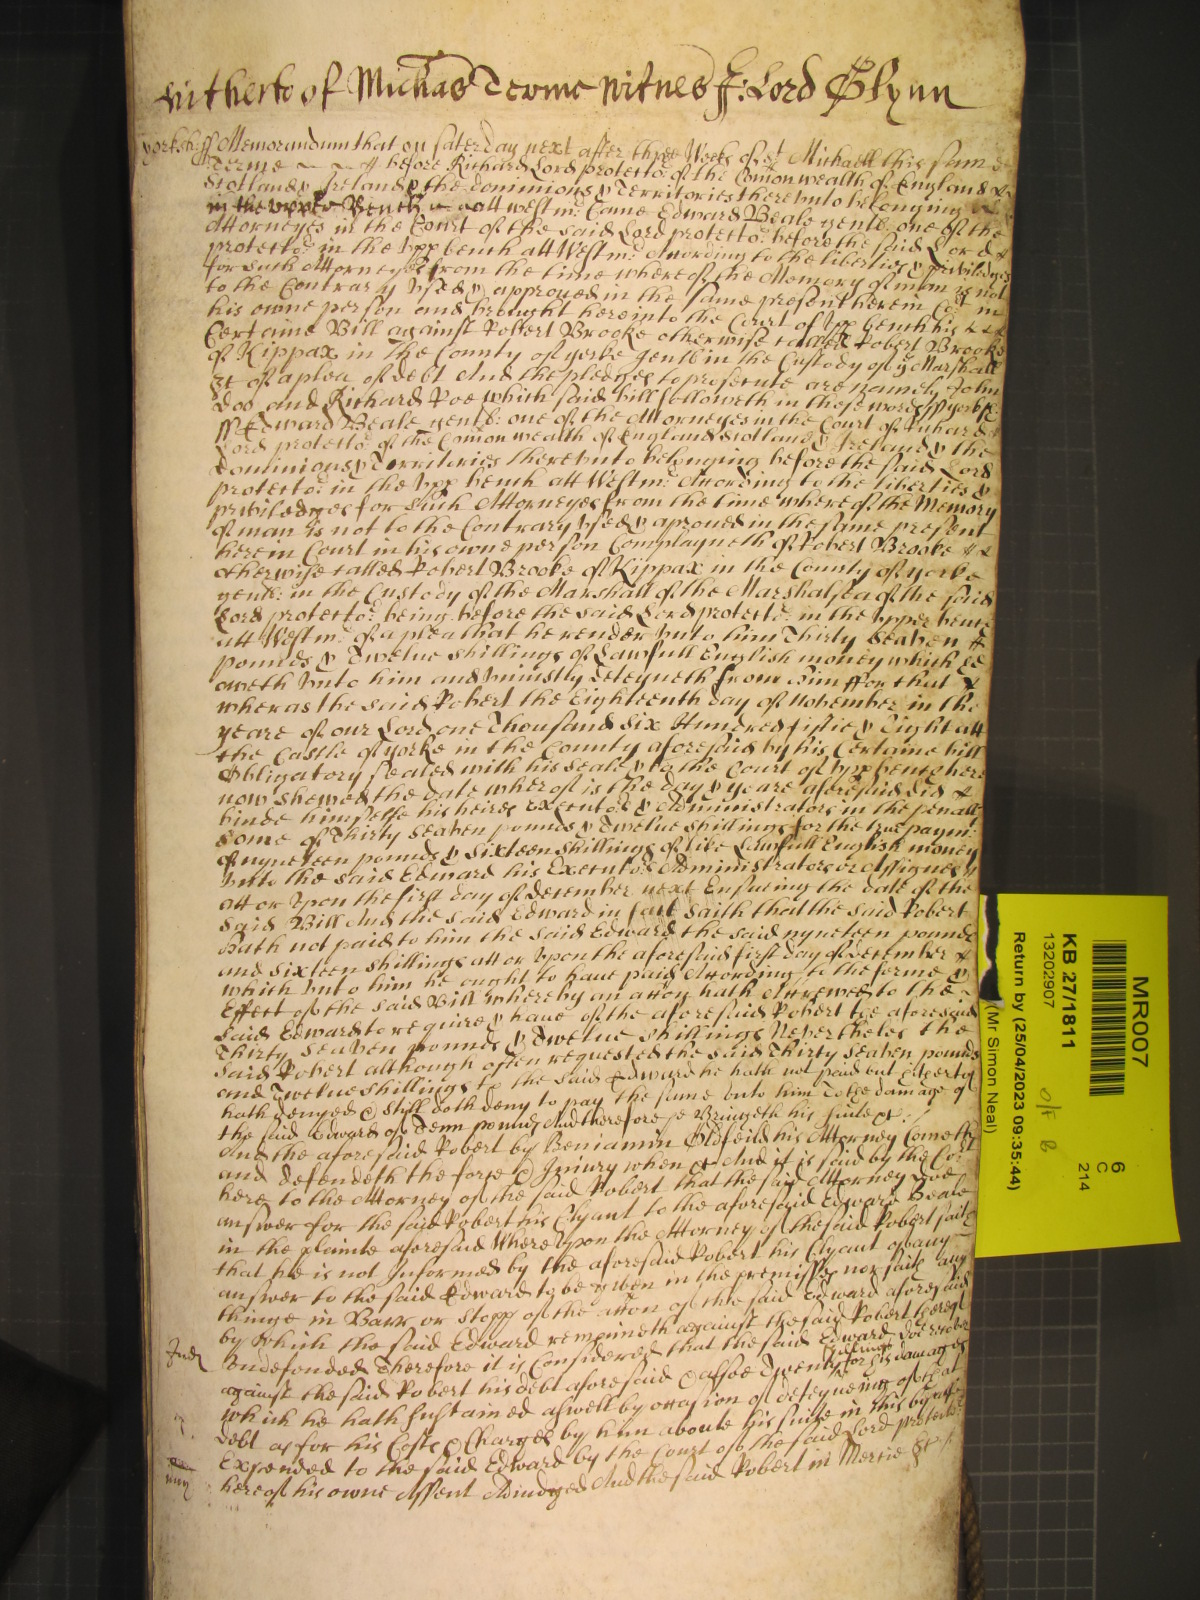 hitherto of Michas Terme Witnes J: Lord Glynn
Yorksh: ss Memorandum that on saterday next after three Weeks of st Michaell this same
Terme before Richard Lord protector of the Comon wealth of England
Scotland & Ireland & the dominions & Territories thereunto belonging
in the upper Bench att westmr: Came Edward Beale gentl: one of the
Attorneyes in the Court of the said Lord protector before the said Lord
protector in the upp bench att Westmr: According to the liberties & priviledges
for such Attorneyes from the time whereof the Memory of man is not
to the Contrary used & approued in the same present herein Cort in
his owne person and brought here into the Court of upp bench his
Certaine Bill against Robert Brooke otherwise called Robert Brooke
of Kippax in the County of yorke gentl in the Custody of ye Marshall
&c of a plea of debt And the pledges to prosecute are namely John
Doo and Richard Roe which said bill followeth in these words ss yorksh:
ss Edward Beale gentl: one of the Attorneyes in the Court of Richard
Lord protector of the Comon wealth of England Scotland & Ireland & the
Dominions & Territories thereunto belonging before the said Lord
protector in the upp bench att Westmr: According to the liberties &
priviledges for such Attorneyes from the time whereof the Memory
of man is not to the Contrary used & aproued in the same present
herein Court in his owne person Complayneth of Robert Brooke
otherwise called Robert Brooke of Kippax in the County of yorke
gentl: in the Custody of the Marshall of the Marshalsea of the said
Lord protector being before the said Lord protector in the upper bench
att Westmr: of a plea that he render unto him Thirty Seaven
pounds & Twelue shillings of Lawfull English money which he
oweth unto him and uniustly deteyneth from him ffor that
wheras the said Robert the Eighteenth day of November in the
yeare of our Lord one Thousand Six Hundred fiftie & Eight att
the Castle of yorke in the County aforesaid by his Certaine bill
Obligatory sealed with his seale & to the Court of upp bench here
now shewed the date wherof is the day & yeare aforesaid did
binde himselfe his heires executors & Administrators in the penall
some of Thirty Seaven pounds & Twelue shillings for the true paymt:
of nyneteen pounds & sixteen shillings of like Lawfull English money
unto the said Edward his Executors Administrators or Assignes
att or upon the first day of december next Ensueing the date of the
said Bill And the said Edward in fact saith that the said Robert
hath not paid to him the said Edward the said nyneteen pounds
and sixteen shillings att or upon the aforesaid first day of december
which unto him he ought to haue paid According to the forme &
Effect of the said Bill whereby an accon hath Accrewed to the
said Edward to require & haue of the aforesaid Robert the aforesaid
Thirty Seaven pounds & Twelue shillings Neuertheles the
said Robert although often requested the said Thirty Seaven pounds
and Twelue shillings to the said Edward he hath not paid but hitherto
hath denyed & still doth deny to pay the same unto him To the damage of
the said Edward of Tenn pounds And therefore he Bringeth his suite &c.
And the aforesaid Robert by Beniamin Oldfeild his Attorney Cometh
and defendeth the force & Iniury when &c And it is said by the Cort
here to the Attorney of the said Robert that the said Attorney doe
answer for the said Robert his Clyant to the aforesaid Edward Beale
in the plainte aforesaid Whereupon the Attorney of the said Robert saith
that he is not Informed by the aforesaid Robert his Clyant of any
answer to the said Edward to be given in the premisses nor saith any
thinge in Barr or stopp of the accon of the said Edward aforesaid
by which the said Edward remayneth against the said Robert therein
Judt undefended Therefore it is Considered that the said Edward doe recover
against the said Robert his debt aforesaid & alsoe Twenty shillings for his damages
which he hath sustained aswell by occasion of deteyneing of that
debt as for his Costs & Charges by him aboute his suite in this behalfe
Expended to the said Edward by the Court of the said Lord protector
here of his owne Assent Adiudged And the said Robert in Mercie &c
MR007
KB 27/1811
13202907
Return by (25/04/2023 09:35:44)
(Mr Simon Neal)
6
C
214